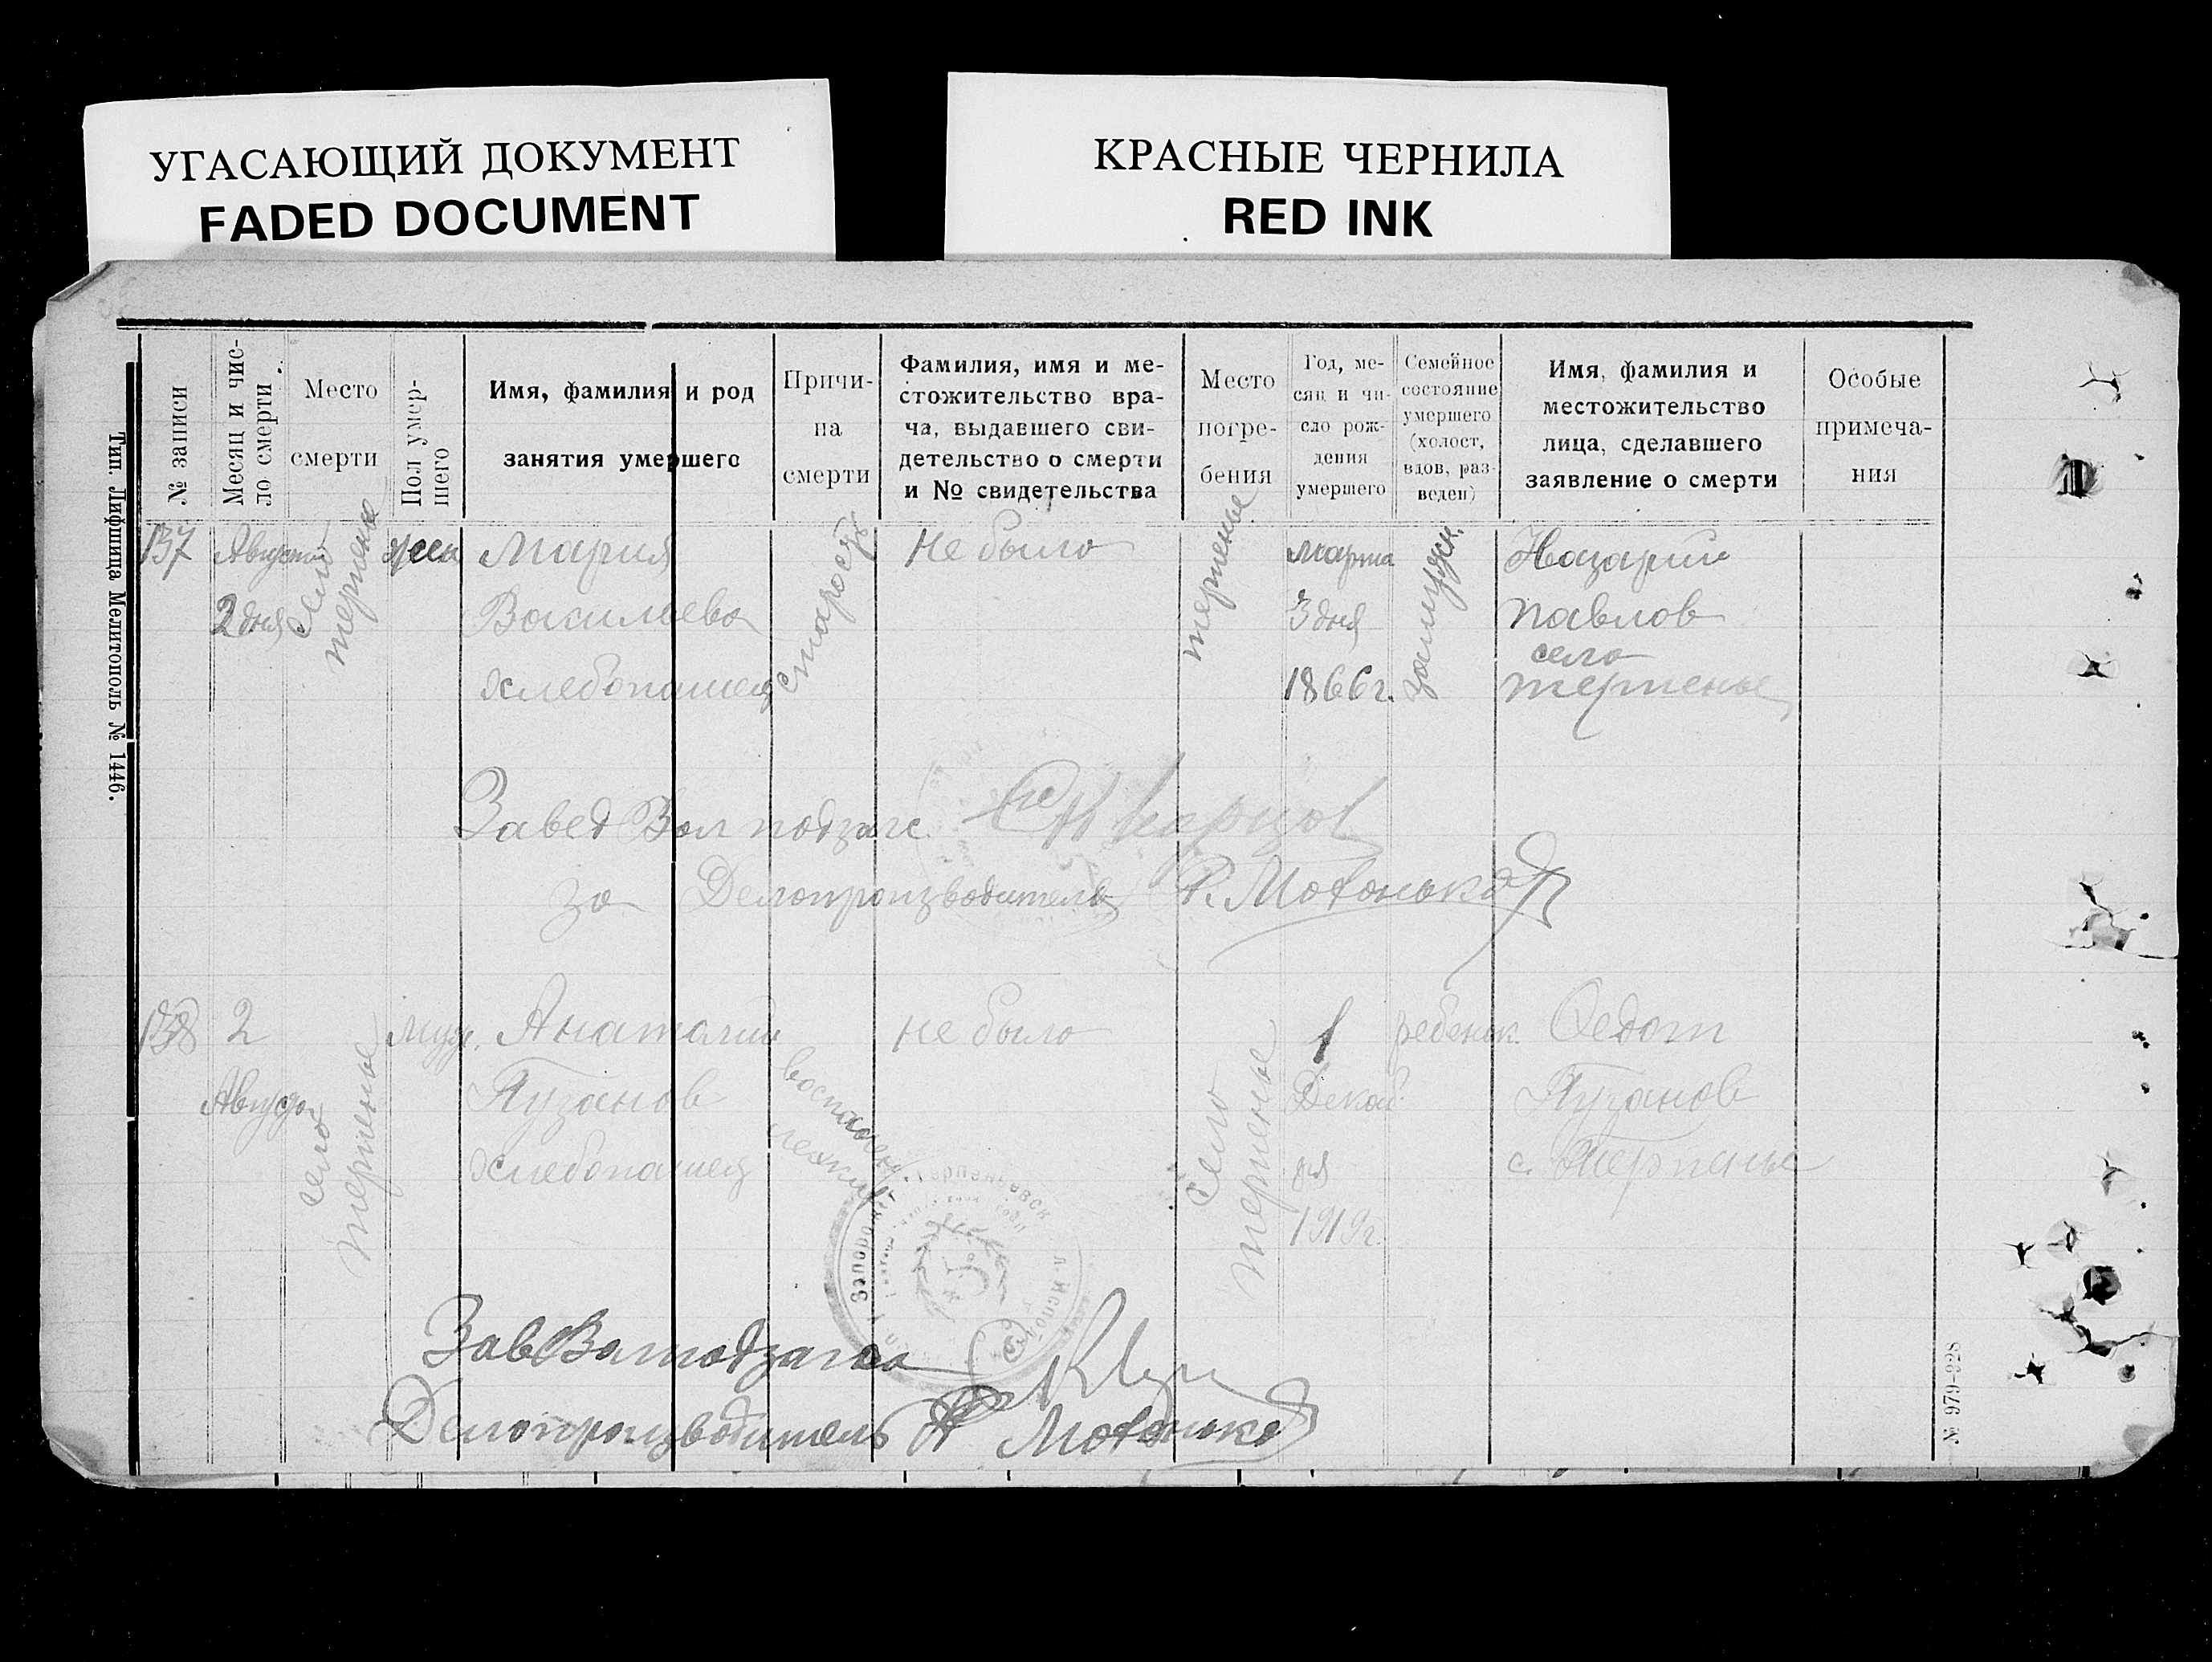 УГАСАЮЩИЙ ДОКУМЕНТ
FADED DOCUMENT
КРАСНЫЕ ЧЕРНИЛА
RED INK
Тип. Лифшица Мелитополь № 1446.
№ записи
Месяц и чис-
ло смерти
Место
смерти
Пол умер-
шего
Имя, фамилия и род
занятия умершего
Причи-
на
смерти
Фамилия, имя и ме-
стожительство вра-
ча, выдавшего сви-
детельство о смерти
и № свидетельства
Место
погре-
бения
Год, ме-
сяц и чи-
сло рож-
дения
умершего
Семейное
состояние
умершего
(холост,
вдов, раз-
веден)
Имя, фамилия и
местожительство
лица, сделавшего
заявление о смерти
Особые
примеча-
ния
137
Августа
2 дня
село
терпенье
жен
Мария
Васильева
хлебопашец
старость
не было
терпенье
марта
3 дня
1866 г.
замужн.
Назарий
павлов
село
терпенье
Завед Вол подзагс.
за Делопроизводитель
138
2
Августа
село
терпенье
муж.
Анатолий
Пузанов
хлебопашец
воспален.
легких
не было
село
терпенье
1
Декаб.
1919 г.
ребенок.
Федот
Пузанов
с. Терпенье
Делопроизводитель
№ 979-328